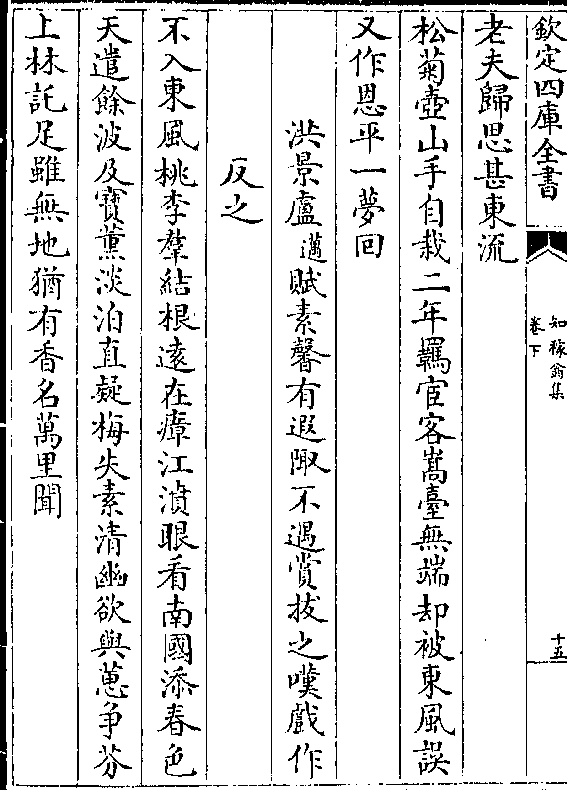 欽定四庫全書
知稼翁集
卷下
十五
老夫歸思甚東流
松菊壺山手自栽二年羈宦客嵩臺無端却被東風誤
又作恩平一夢回
洪景盧邁賦素馨有遐陬不遇賞拔之嘆戲作
反之
不入東風桃李羣結根遠在瘴江濆眼看南國添春色
天遣餘波及寶薰淡泊直疑梅失素清幽欲與蕙争芬
上林託足雖無地猶有香名萬里聞